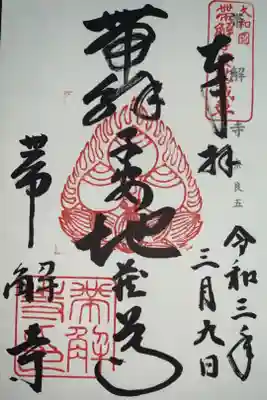 奉拝
令和三年
三月九日
帯解
子安
地蔵尊
帯解寺
大和国
帯解寺印